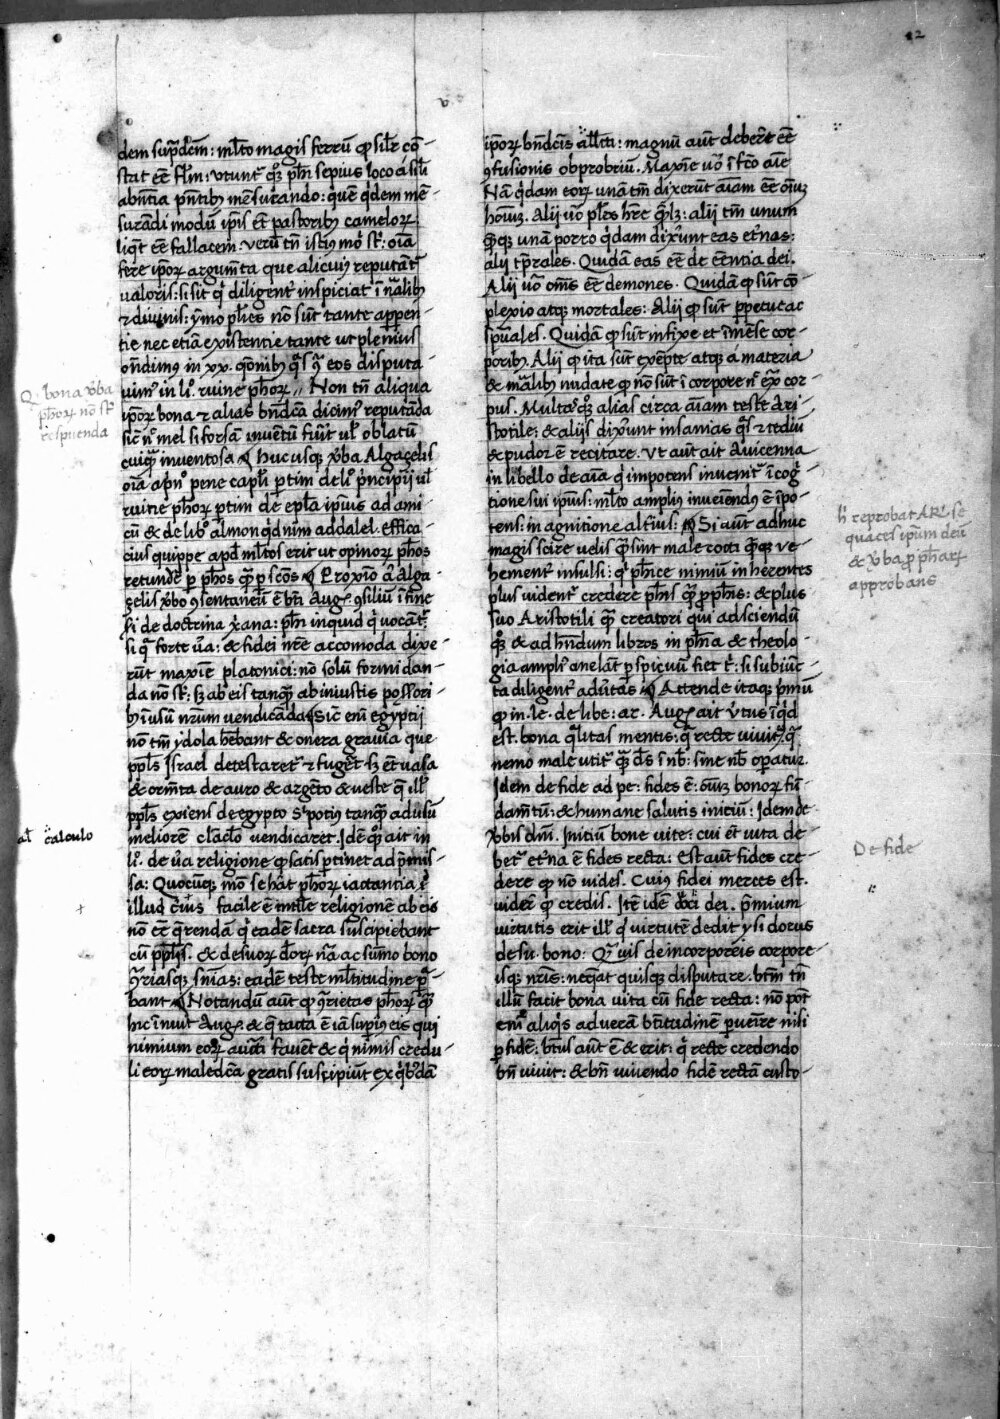 12
v
dem sup̄dc̄m: ml̄to magis ferrū ꝙ sil̄r cō-
stat eē fl̄m: vtunt᷑ qꝫ pħi sepius loco a sili
abn̄tia pn̄tibꝫ mēsurando: quē qdem mē-
surādi modū ip̄is et̄ pastoribꝫ camelorꝝ
liqt eē fallacem: verū tn̄ istiꝰ mō st̄: oīa
fere ip̄orꝝ argum̄ta que alicuiꝰ reputāt᷑
valoris: si sit q diligent᷑ inspiciat ī nal̄ibꝫ
⁊ diuinis: ymo pl̄ies nō sūt tante appen-
tie nec etiā existentie tante ut plenius
on̄dimꝰ in xx. qōnibꝫ qͥs ꝯ eos disputa-
uimꝰ in li°. ruine pħorꝝ // Non tn̄ aliqua
ip̄orꝝ bona ⁊ alias bn̄dc̄a dicimꝰ reputāda
sic̄ n° mel si forsā inuentū fuīt ul̓ oblatū
cuiqꝫ inuentosa ¶ huc usqꝫ v̓ba Algaçelis
oīa a pn° pene capl̄i ꝑtim de li° pͥncipij ul̓
ruine pħorꝝ ꝑtim de epl̄a ipiꝰ ad ami-
cū & de lib° almon qd nim addalel. Effica-
cius quippe apd ml̄tos erit ut opinorꝝ pħos
retundē ꝑ pħos qꝫ ꝑ scōs ¶ Proxīo aū Alga-
zelis v̓bo ꝯsentaneū ē bt̄i Augꝭ ꝯsiliū ī fine
li de doctrina xana: pħi inquid q vocāt᷑
si q forte ua: & fidei nrē accomoda dixe-
rūt maxīe platonici: nō solū formidan-
da nō st̄: sꝫ ab eis tanqꝫ ab iniustis possori-
bꝫ ī usū nrm̄ vendicāda ¶ Sic̄ eni egyptij
nō tm̄ ydola hēbant & onera grauia que
ppl̄s Israel detestaret᷑ ⁊ fugēt sꝫ et̄ uasa
& orn̄ta de auro & argēto & ueste q ill̓
ppl̄s exiens de egypto sꝉ potiꝰ tanqꝫ ad usū
meliorē clāclo vendicaret. Idē qꝫ ait in
li°. de ua religione ꝙ satis ꝑtinet ad pͥmis-
sa: Quocūqꝫ mō se hāt pħorꝝ iactantia ī
illud cuiꝰ facile ē intlle religionē ab eis
nō eē q̄rendā q eadē sacra suscipiebant
cū ppl̄is. & de suorꝝ dorꝝ nā ac sūmo bono
ꝯriasqꝫ snīas: eadē teste ml̄titudine ꝑ-
bant ¶ Notandū aut̄ ꝙ ꝯrietas pħorꝝ qꝫ
hic īnuit Augꝭ. & q tacta ē iā supiꝰ eis qui
nimium eorꝝ aucti fauent & q nimis credu-
li eorꝝ maledca gratis suscipiūt ex qbꝰdā
ip̄orꝝ bn̄dcīs allt̄i: magnū aūt debēt eē
ꝯfusionis obprobriū. Maxīe uō ī fc̄o aīe
Nā qdam eorꝝ unā tm̄ dixerūt aīam eē oniꝫ
hoīuꝫ. Alij uō pl̄es hrē ql̄z: alij tm̄ unum
ꝙqꝫ unā porro qdam dixūnt eas etnas:
alij tp̄rales. Quidā eas eē de eēntia dei.
Alij uō oms̄ eē demones. Quidā ꝙ sūt cō-
plexio atqꝫ mortales: Alij ꝙ sūt ꝑpetue ac
spūales. Quidā ꝙ sūt infixe et īmēse cor-
poribꝫ. Alij ꝙ ita sūt exēpte atqꝫ a materia
& mal̄ibꝫ nudate ꝙ nō sūt ī corpore n° ex̄ cor-
pus. Multaqꝫ alias circa aīam teste Ari-
stotile: & alijs dixūnt insanias qͥs ⁊ tediū
& pudor ē recitare. Vt aūt ait Auicenna
in libello de aīa q impotens inuenit᷑ ī cog-
tione sui ipiꝰ: ml̄to ampliꝰ inueiendꝰ ē īpo-
tens in agnitione altiꝰ: ¶ Si aūt adhuc
magis scire uelis qꝫ sint male cocti qqꝫ ve-
hement᷑ insulsi: q pħice nimiū inherentes
plus vident᷑ credere pħis qꝫ ꝓpħis: & plus
suo Aristotili qꝫ creatori qui ad sciendū
qꝫ & ad hn̄dum libros in pħia & theolo-
gia ampl̓ anelāt ꝑspicuū fiet t̄: si subiūc-
ta diligent᷑ adutās ¶ Attende itaqꝫ pͥmū
ꝙ in. le. de libe: ar. Augꝭ ait v̓tus īqd
est. bona q̄litas mentis: q recte viuit᷑ q
nemo male utit᷑ qꝫ ds̄ ī nb̄: sine nb̄ opatur.
Idem de fide ad pe: fides ē: oniuꝫ bonorꝝ fū-
damtū: & humane salutis iniciū: Idem de
v̓bis dn̄i. Iniciū bone vite: cui et̄ vita de-
bet᷑ etna ē fides recta: Est aūt fides cre-
dere ꝙ nō vides. Cuiꝰ fidei merces est.
vidē ꝙ credis. Itē idē Dc̄i dei. pͥmium
virtutis erit ill̓ q virtutē dedit ysidorus
de su. bono: Qͣ uis de incorporeis corpore-
isqꝫ nrīs: neqat quisqꝫ disputare. btm̄ tn̄
illū facit bona vita cū fide recta: nō pōt
eni aliqis ad uerā btitudinē ꝑuenīre nisi
ꝑ fidē: btūs aūt ē & erit: q recte credendo
bn̄ viuit: & bn̄ viuendo fidē rectā custo-
Q. bona v̓ba
pħorꝝ nō st̄
respuenda
al̓ cālculo
+
h̓ reprobat AR̓. se-
quaces ipm̄ dei
& v̓ba ꝓpħarꝝ
approbans
De fide